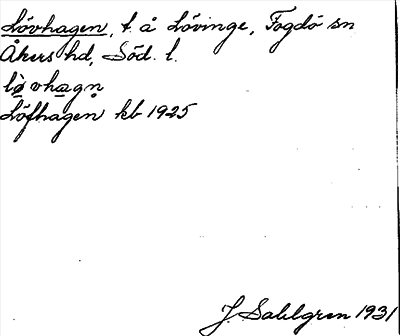 Lövhagen, t. å Lövinge, Fogdö sn
Åkers hd, Söd. l.
lø̀vhagn̥
Löfhagen kb 1925
J. Sahlgren 1931